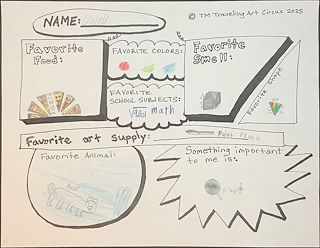 NAME:
© TM Traveling Art Circus 2025
Favorite
Food:
FAVORITE COLORS:
Favorite
Smell:
FAVORITE
SCHOOL SUBJECTS:
math
Favorite Shape
Favorite art supply:
Paint Brush
Favorite Animal:
Something important
to me is: